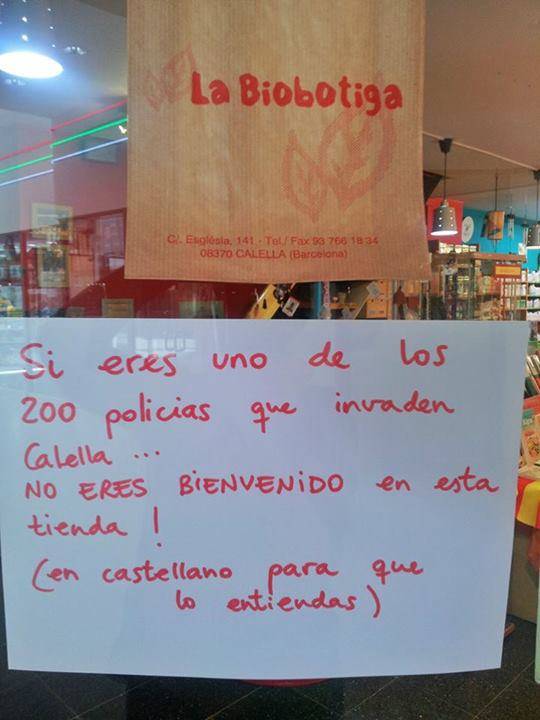 La Biobotiga
C/. Església, 141 - Tel./ Fax 93 766 18 34
08370 CALELLA (Barcelona)
Si eres uno de los
200 policias que invaden
Calella ...
NO ERES BIENVENIDO en esta
tienda !
(en castellano para que
lo entiendas)